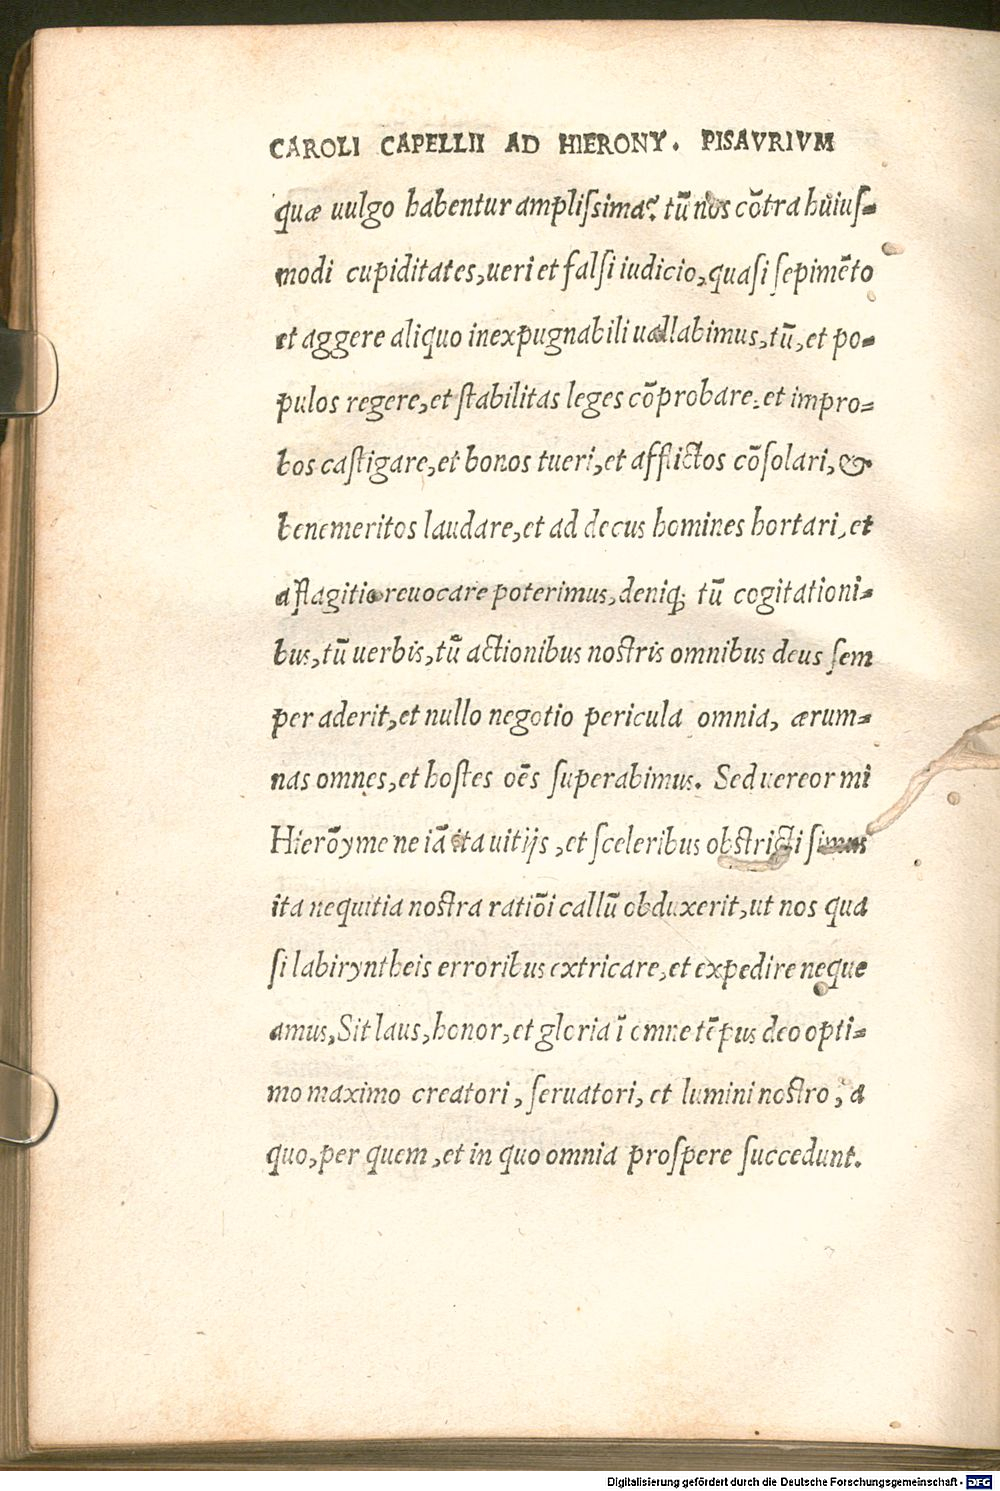 CAROLI CAPELLII AD HIERONY. PISAVRIVM
quæ uulgo habentur ampliſsima? tū nos cōtra huiuſ=
modi cupiditates, ueri et falſi iudicio, quaſi ſepimēto
et aggere aliquo inexpugnabili uallabimus, tū, et po=
pulos regere, et ſtabilitas leges cōprobare: et impro=
bos caſtigare, et bonos tueri, et afflictos cōſolari, &
benemeritos laudare, et ad decus homines hortari, et
a flagitio reuocare poterimus, deniq; tū cogitationi=
bus, tū uerbis, tū actionibus noſtris omnibus deus ſem
per aderit, et nullo negotio pericula omnia, ærum=
nas omnes, et hoſtes oēs ſuperabimus. Sed uereor mi
Hierōyme ne iā ita uitijs, et ſceleribus obſtricti ſimus
ita nequitia noſtra ratiōi callū obduxerit, ut nos qua
ſi labiryntheis erroribus extricare, et expedire neque
amus, Sit laus, honor, et gloria ī omne tēpus deo opti=
mo maximo creatori, ſeruatori, et lumini noſtro, a
quo, per quem, et in quo omnia proſpere ſuccedunt.
Digitalisierung gefördert durch die Deutsche Forschungsgemeinschaft - DFG